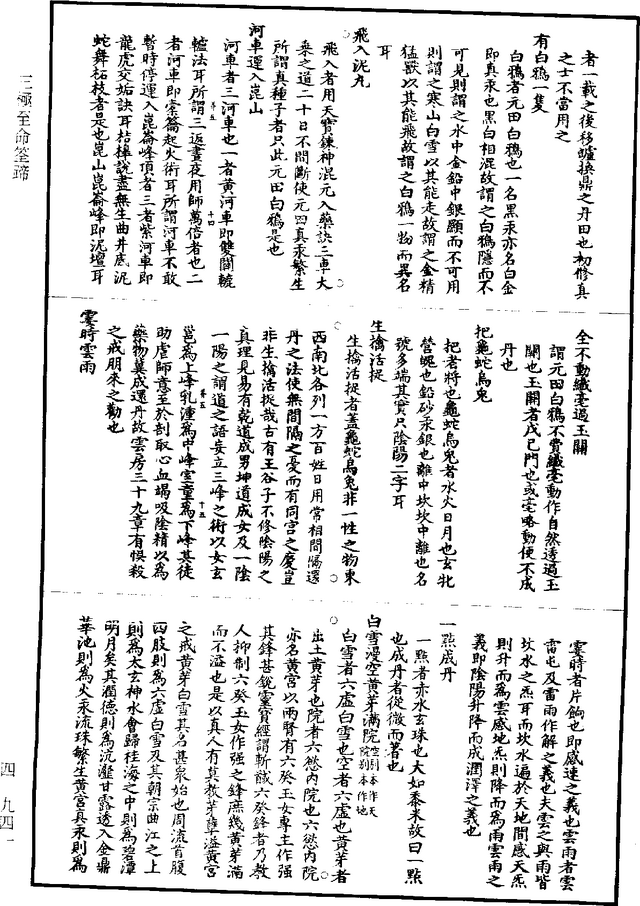 三極至命筌蹄
者一載之後移爐換鼎之丹田也初修真
之士不當用之
有白鵶一隻
白鵶者元田白鵶也一名黑汞亦名白金
即真汞也黑白相混故謂之白鵶隱而不
可見則謂之水中金鉛中銀顯而不可用
則謂之寒山白雪以其能走故謂之金精
猛獸以其能飛故謂之白鵶一物而異名
耳
飛入泥丸
飛入者用天寶鍊神混元入藥訣三車大
乗之道二十日不間斷使元田真汞繁生
所謂真種子者只此元田白鵶是也
河車運入崑山
河車者三河車也一者黃河車即雙關轆
轤法耳所謂三返晝夜用師萬倍者也二
者河車即橐籥起火術耳所謂河車不敢
暫時停運入崑崙峰頂者三者紫河車即
龍虎交姤訣耳桔槹說盡無生曲井底泥
蛇舞柘枝者是也崑山崑崙峰即泥壇耳
全不動纖毫過玉關
謂元田白鵶不費纖毫動作自然透過玉
關也玉關者戊己門也或毫略動便不成
丹也
把龜蛇烏兔
把者將也龜蛇烏兔者水火日月也玄牝
營魄也鉛砂汞銀也離中坎坎中離也名
號多端其實只陰陽二字耳
生擒活捉
生擒活捉者蓋龜蛇烏兔非一性之物東
西南北各列一方百姓日用常相間隔還
丹之法使無間隔之憂而有同宫之慶豈
非生擒活捉哉古有王谷子不修陰陽之
真理見易有乾道成男坤道成女及一陰
一陽之謂道之語妄立三峰之術以女玄
邕為上峰乳湩為中峰室童為下峰其徒
助虐師意至於剖取心血竭吸陰精以為
藥物冀成還丹故雲房三十九章有悞殺
之戒朋來之勸也
霎時雲雨
霎時者片餉也即感速之義也雲雨者雲
雷屯及雷雨作解之義也夫雲之與雨皆
坎水之炁耳而坎水遍於天地間感天炁
則升而為雲感地炁則降而為雨雲雨之
義即陰陽升降而成潤澤之義也
一點成丹
一點者赤水玄珠也大如黍米故曰一點
也成丹者從微而著也
白雪漫空黃芽滿院空别本作天院别本作地
白雪者六虛白雪也空者六虛也黃芽者
出土黃芽也院者六慾內院也六慾內院
亦名黃宫以兩腎有六癸玉女專主作強
其鋒甚銳靈寶經謂斬馘六癸鋒者乃教
人抑制六癸玉女作強之鋒庶幾黃芽滿
而不溢也是以真人有莫教芽蘖溢黃宫
之戒黃芽白雪其名甚衆始也周流首腹
四肢則為六虛白雪及其朝宗曲江之上
則為太玄神水會歸桂海之中則為碧潭
明月矣其潤德則為沉瀣甘露透入金鼎
華池則為火汞流珠繁生黃宫真汞則為
四 九四一